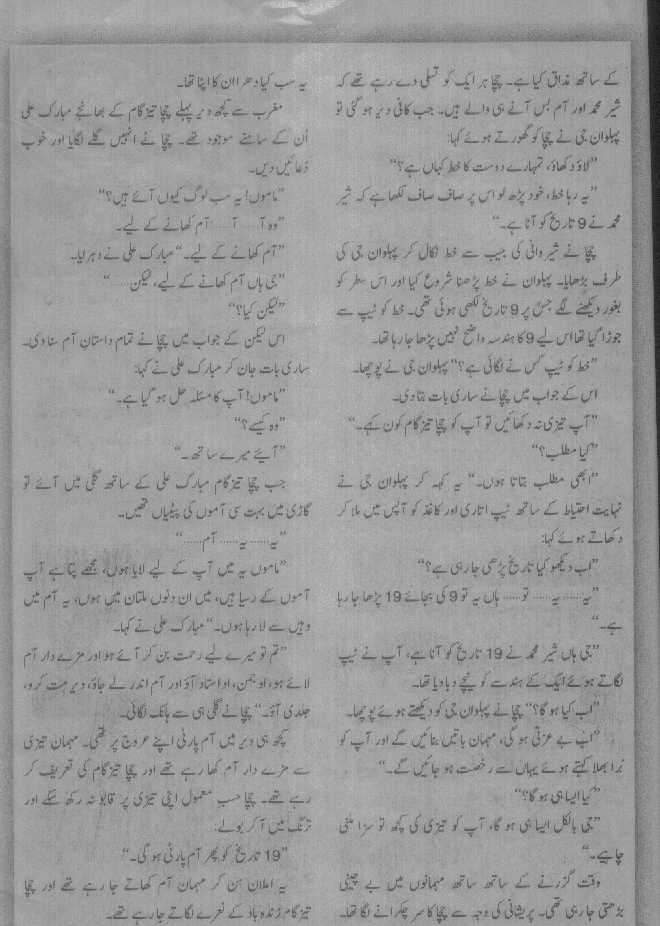 کے ساتھ مذاق کیا ہے۔ چچا ہر ایک کو تسلی دے رہے تھے کہ
شیر محمد اور آم بس آنے ہی والے ہیں۔ جب کافی دیر ہو گئی تو
پہلوان جی نے چچا کو گھورتے ہوئے کہا:
”لاؤ دکھاؤ، تمہارے دوست کا خط کہاں ہے؟“
”یہ رہا خط، خود پڑھ لو اس پر صاف صاف لکھا ہے کہ شیر
محمد نے 9 تاریخ کو آنا ہے۔“
چچا نے شیروانی کی جیب سے خط نکال کر پہلوان جی کی
طرف بڑھایا۔ پہلوان نے خط پڑھنا شروع کیا اور اس سطر کو
بغور دیکھنے لگے جس پر 9 تاریخ لکھی ہوئی تھی۔ خط کو ٹیپ سے
جوڑا گیا تھا اس لیے 9 کا ہندسہ واضح نہیں پڑھا جا رہا تھا۔
”خط کو ٹیپ کس نے لگائی ہے؟“ پہلوان جی نے پوچھا۔
اس کے جواب میں چچا نے ساری بات بتا دی۔
”آپ تیزی نہ دکھائیں تو آپ کو چچا تیز گام کون کہے۔“
”کیا مطلب؟“
”ابھی مطلب بتاتا ہوں۔“ یہ کہہ کر پہلوان جی نے
نہایت احتیاط کے ساتھ ٹیپ اتاری اور کاغذ کو آپس میں ملا کر
دکھاتے ہوئے کہا:
”اب دیکھو کیا تاریخ پڑھی جا رہی ہے؟“
”یہ...... یہ...... تو...... ہاں یہ تو 9 کی بجائے 19 پڑھا جا رہا
ہے۔“
”جی ہاں شیر محمد نے 19 تاریخ کو آنا ہے، آپ نے ٹیپ
لگاتے ہوئے ایک کے ہندسے کو نیچے دبا دیا تھا۔
”اب کیا ہو گا؟“ چچا نے پہلوان جی کو دیکھتے ہوئے پوچھا۔
”اب بے عزتی ہو گی، مہمان باتیں بنائیں گے اور آپ کو
برا بھلا کہتے ہوئے یہاں سے رخصت ہو جائیں گے۔“
”کیا ایسا ہی ہو گا؟“
”جی بالکل ایسا ہی ہو گا، آپ کو تیزی کی کچھ تو سزا ملنی
چاہیے۔“
وقت گزرنے کے ساتھ ساتھ مہمانوں میں بے چینی
بڑھتی جا رہی تھی۔ پریشانی کی وجہ سے چچا کا سر چکرانے لگا تھا۔
یہ سب کیا دھرا ان کا اپنا تھا۔
مغرب سے کچھ دیر پہلے چچا تیز گام کے بھانجے مبارک علی
اُن کے سامنے موجود تھے۔ چچا نے انہیں گلے لگایا اور خوب
دُعائیں دیں۔
”ماموں! یہ سب لوگ کیوں آئے ہیں؟“
”وہ آ...... آ...... آم کھانے کے لیے۔
”آم کھانے کے لیے۔“ مبارک علی نے دہرایا۔
”جی ہاں آم کھانے کے لیے، لیکن......“
”لیکن کیا؟“
اس لیکن کے جواب میں چچا نے تمام داستانِ آم سنا دی۔
ساری بات جان کر مبارک علی نے کہا:
”ماموں! آپ کا مسئلہ حل ہو گیا ہے۔“
”وہ کیسے؟“
”آیئے میرے ساتھ۔“
جب چچا تیز گام مبارک علی کے ساتھ گلی میں آئے تو
گاڑی میں بہت سی آموں کی پیٹیاں تھیں۔
”یہ...... یہ...... آم......“
”ماموں یہ میں آپ کے لیے لایا ہوں، مجھے پتا ہے آپ
آموں کے رسیا ہیں، میں ان دنوں ملتان میں ہوں، یہ آم میں
وہیں سے لا رہا ہوں۔“ مبارک علی نے کہا۔
”تم تو میرے لیے رحمت بن کر آئے ہو اور مزے دار آم
لائے ہو، او جمن، او استاد آؤ اور آم اندر لے جاؤ، دیر مت کرو،
جلدی آؤ۔“ چچا نے گلی ہی سے ہانک لگائی۔
کچھ ہی دیر میں آم پارٹی اپنے عروج پر تھی۔ مہمان تیزی
سے مزے دار آم کھا رہے تھے اور چچا تیز گام کی تعریف کر
رہے تھے۔ چچا حسبِ معمول اپنی تیزی پر قابو نہ رکھ سکے اور
ترنگ میں آ کر بولے:
”19 تاریخ کو پھر آم پارٹی ہو گی۔“
یہ اعلان سن کر مہمان آم کھاتے جا رہے تھے اور چچا
تیز گام زندہ باد کے نعرے لگاتے جا رہے تھے۔